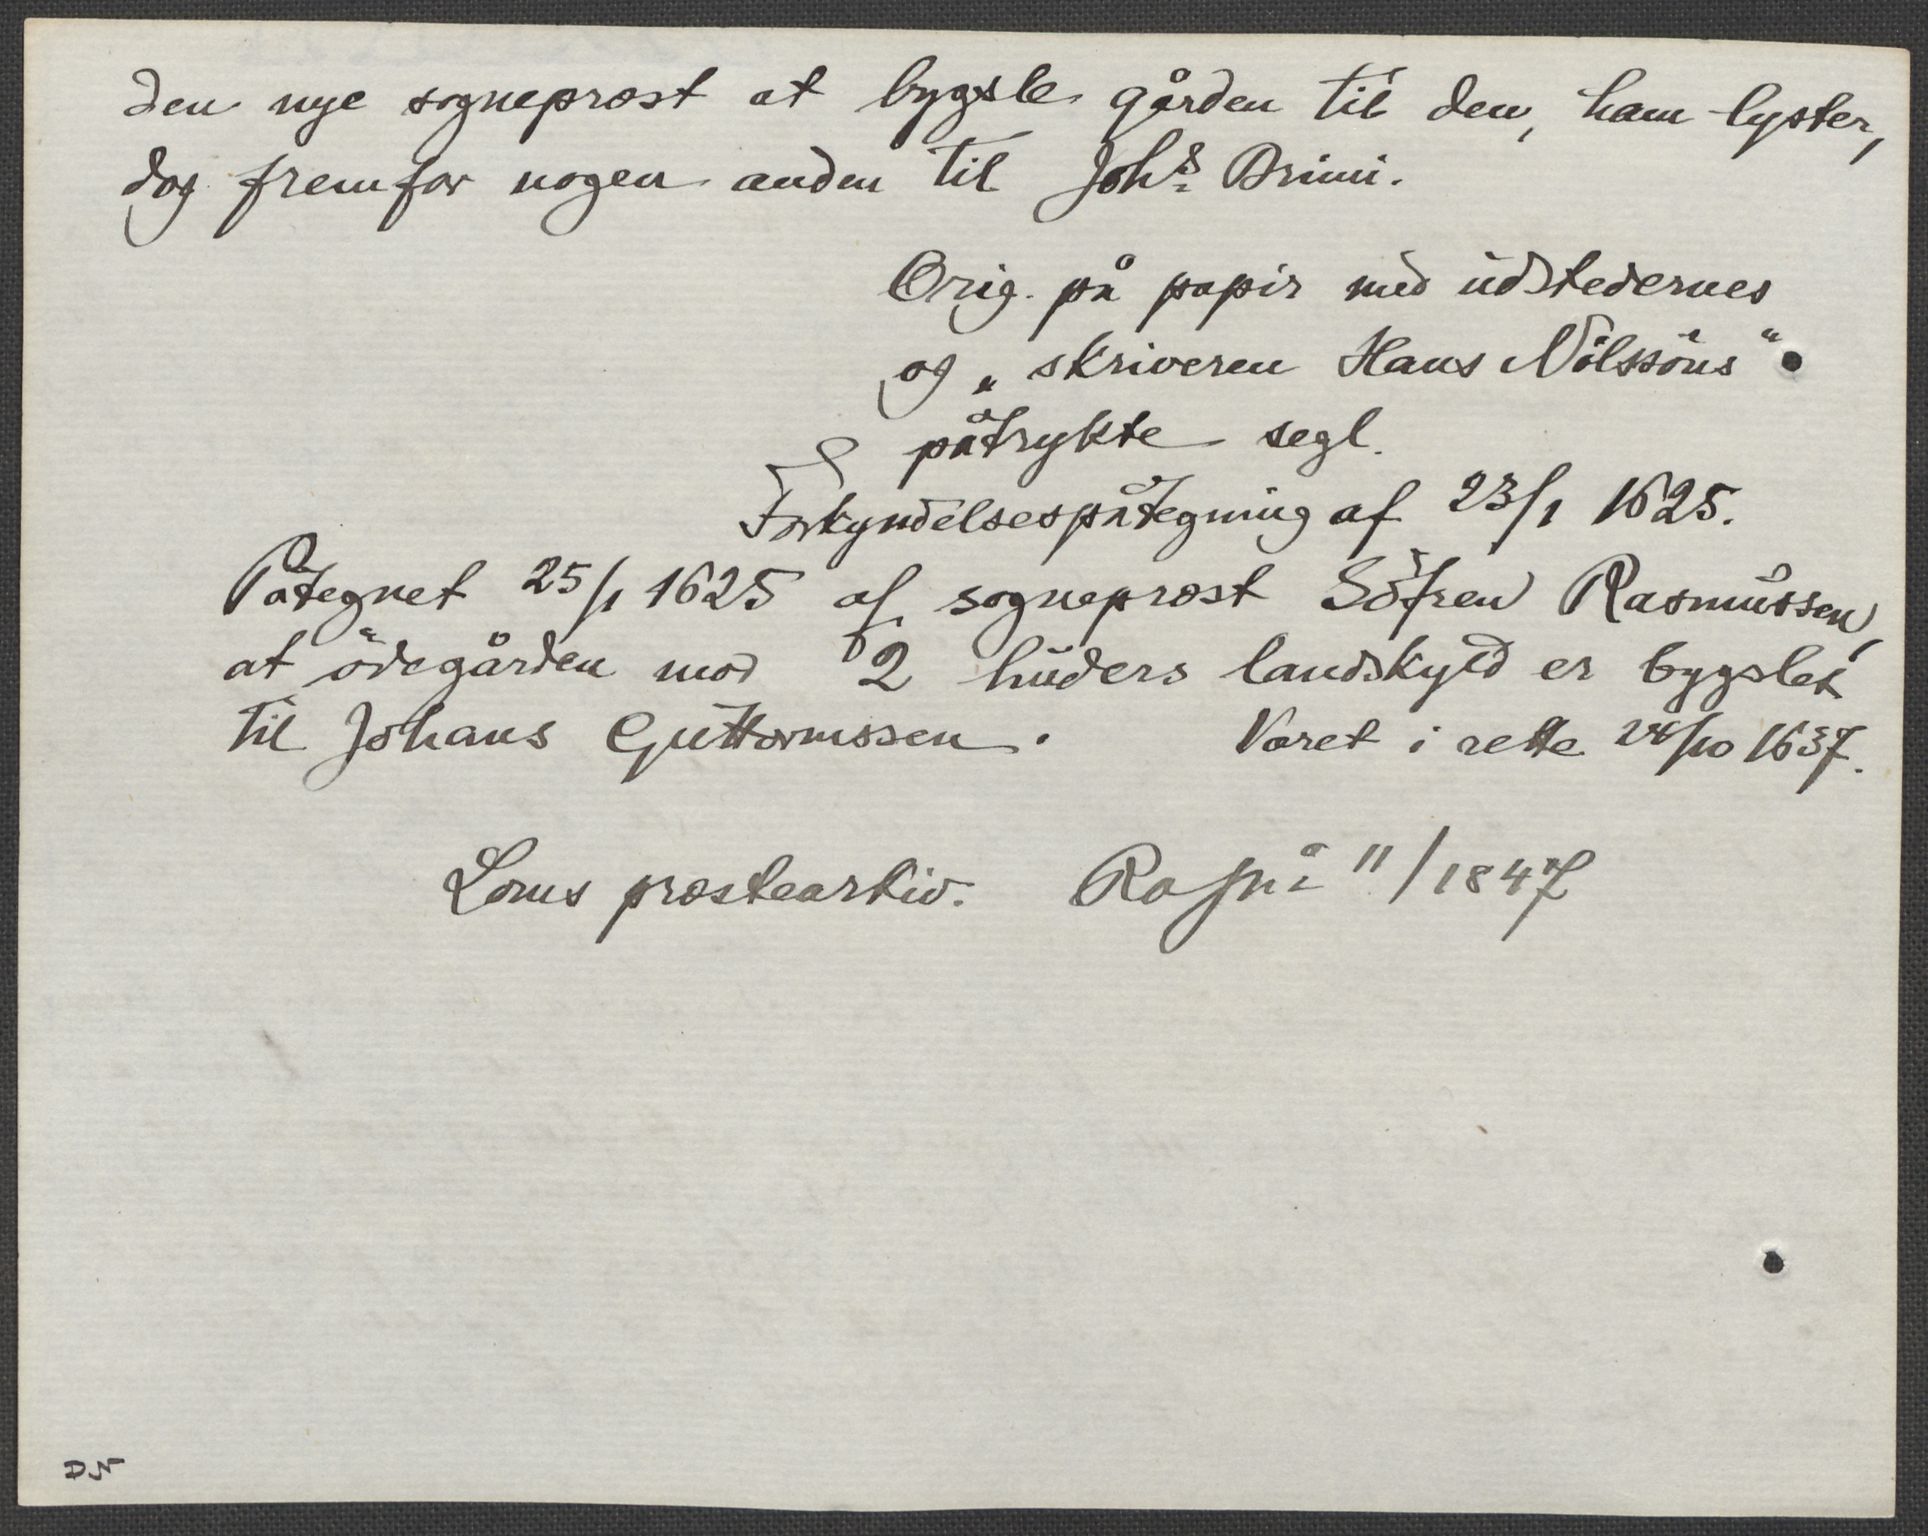 den nye sogneprest at bygsle gården til den, ham lyster,
dog fremfor nogen anden til Johs Brimi.
Orig. på papir med udstedernes
og „skriveren Hans Nilssöns“
påtrykte segl.
Forkyndelsespåtegning af 23/1 1625.
Påtegnet 25/1 1625 af sogneprest Söfren Rasmussen,
at ödegården mod 2 huders landskyld er bygslet
til Johans Guttormssen. Været i rette 24/10 1637.
Loms prestearkiv. Ra 11/1847
DN